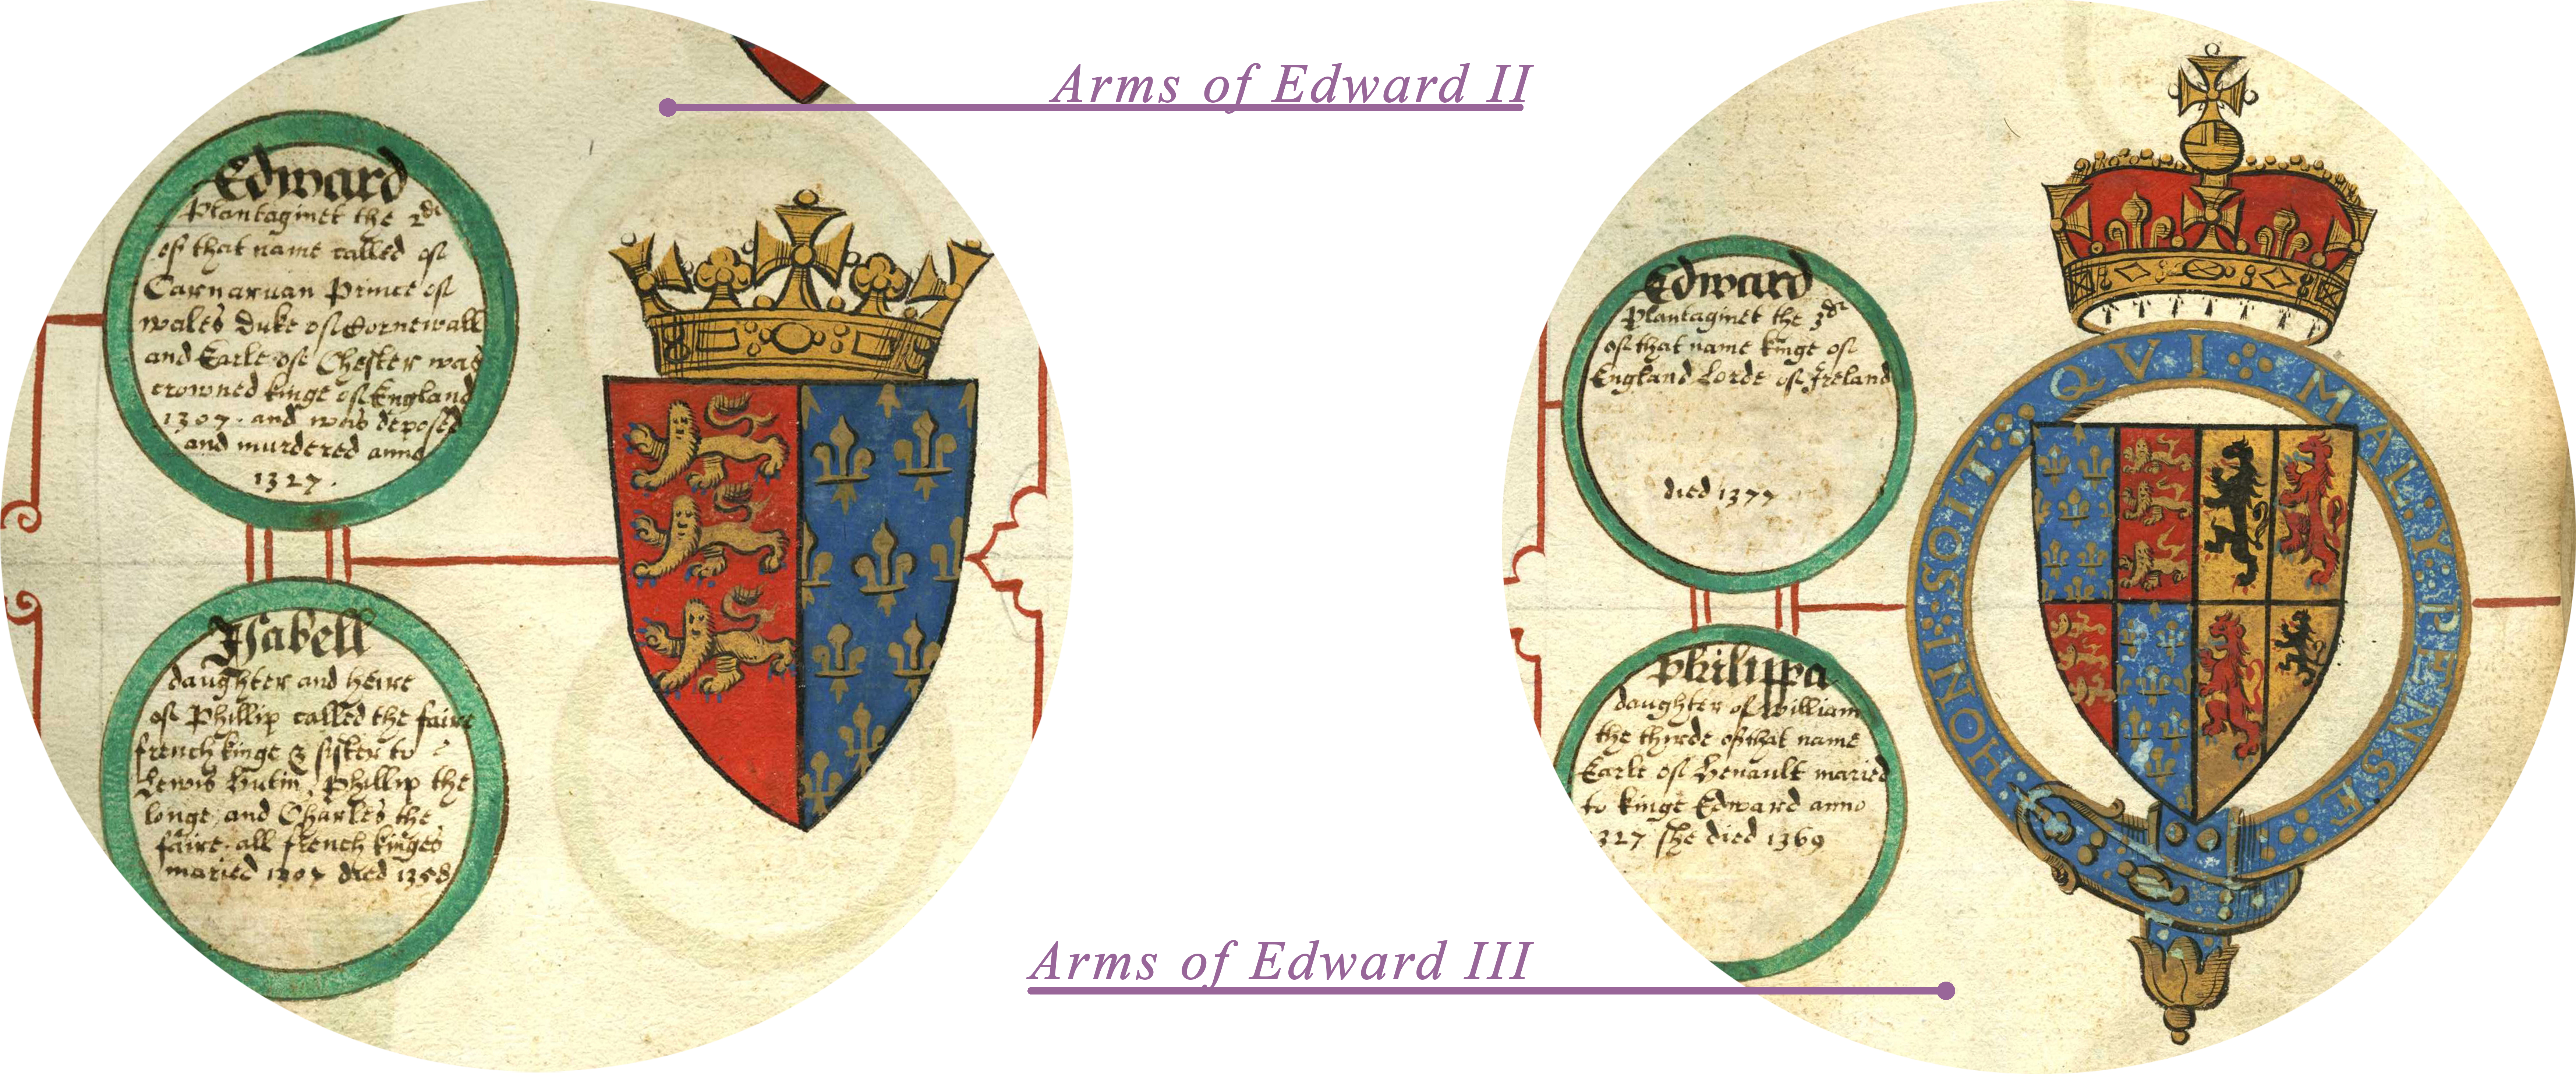 Arms of Edward II
Edward
Plantaginet the 2de
of that name called of
Carnarvan Prince of
wales Duke of Cornewall
and Earle of Chester was
crowned kinge of England
1307. and was deposed
and murdered anno
1327.
Isabell
daughter and heire
of Phillip called the faire
french kinge & sister to
Lewis Hutin, Phillip the
longe, and Charles the
faire. all french kinges
maried 1307 died 1358
Arms of Edward III
Edward
Plantaginet the 3de
of that name kinge of
England Lorde of Ireland
died 1377
Philippa
daughter of William
the thyrde of that name
Earle of Henault maried
to kinge Edward anno
327 she died 1369
HONI·SOIT·QVI·MAL·Y·PENSE